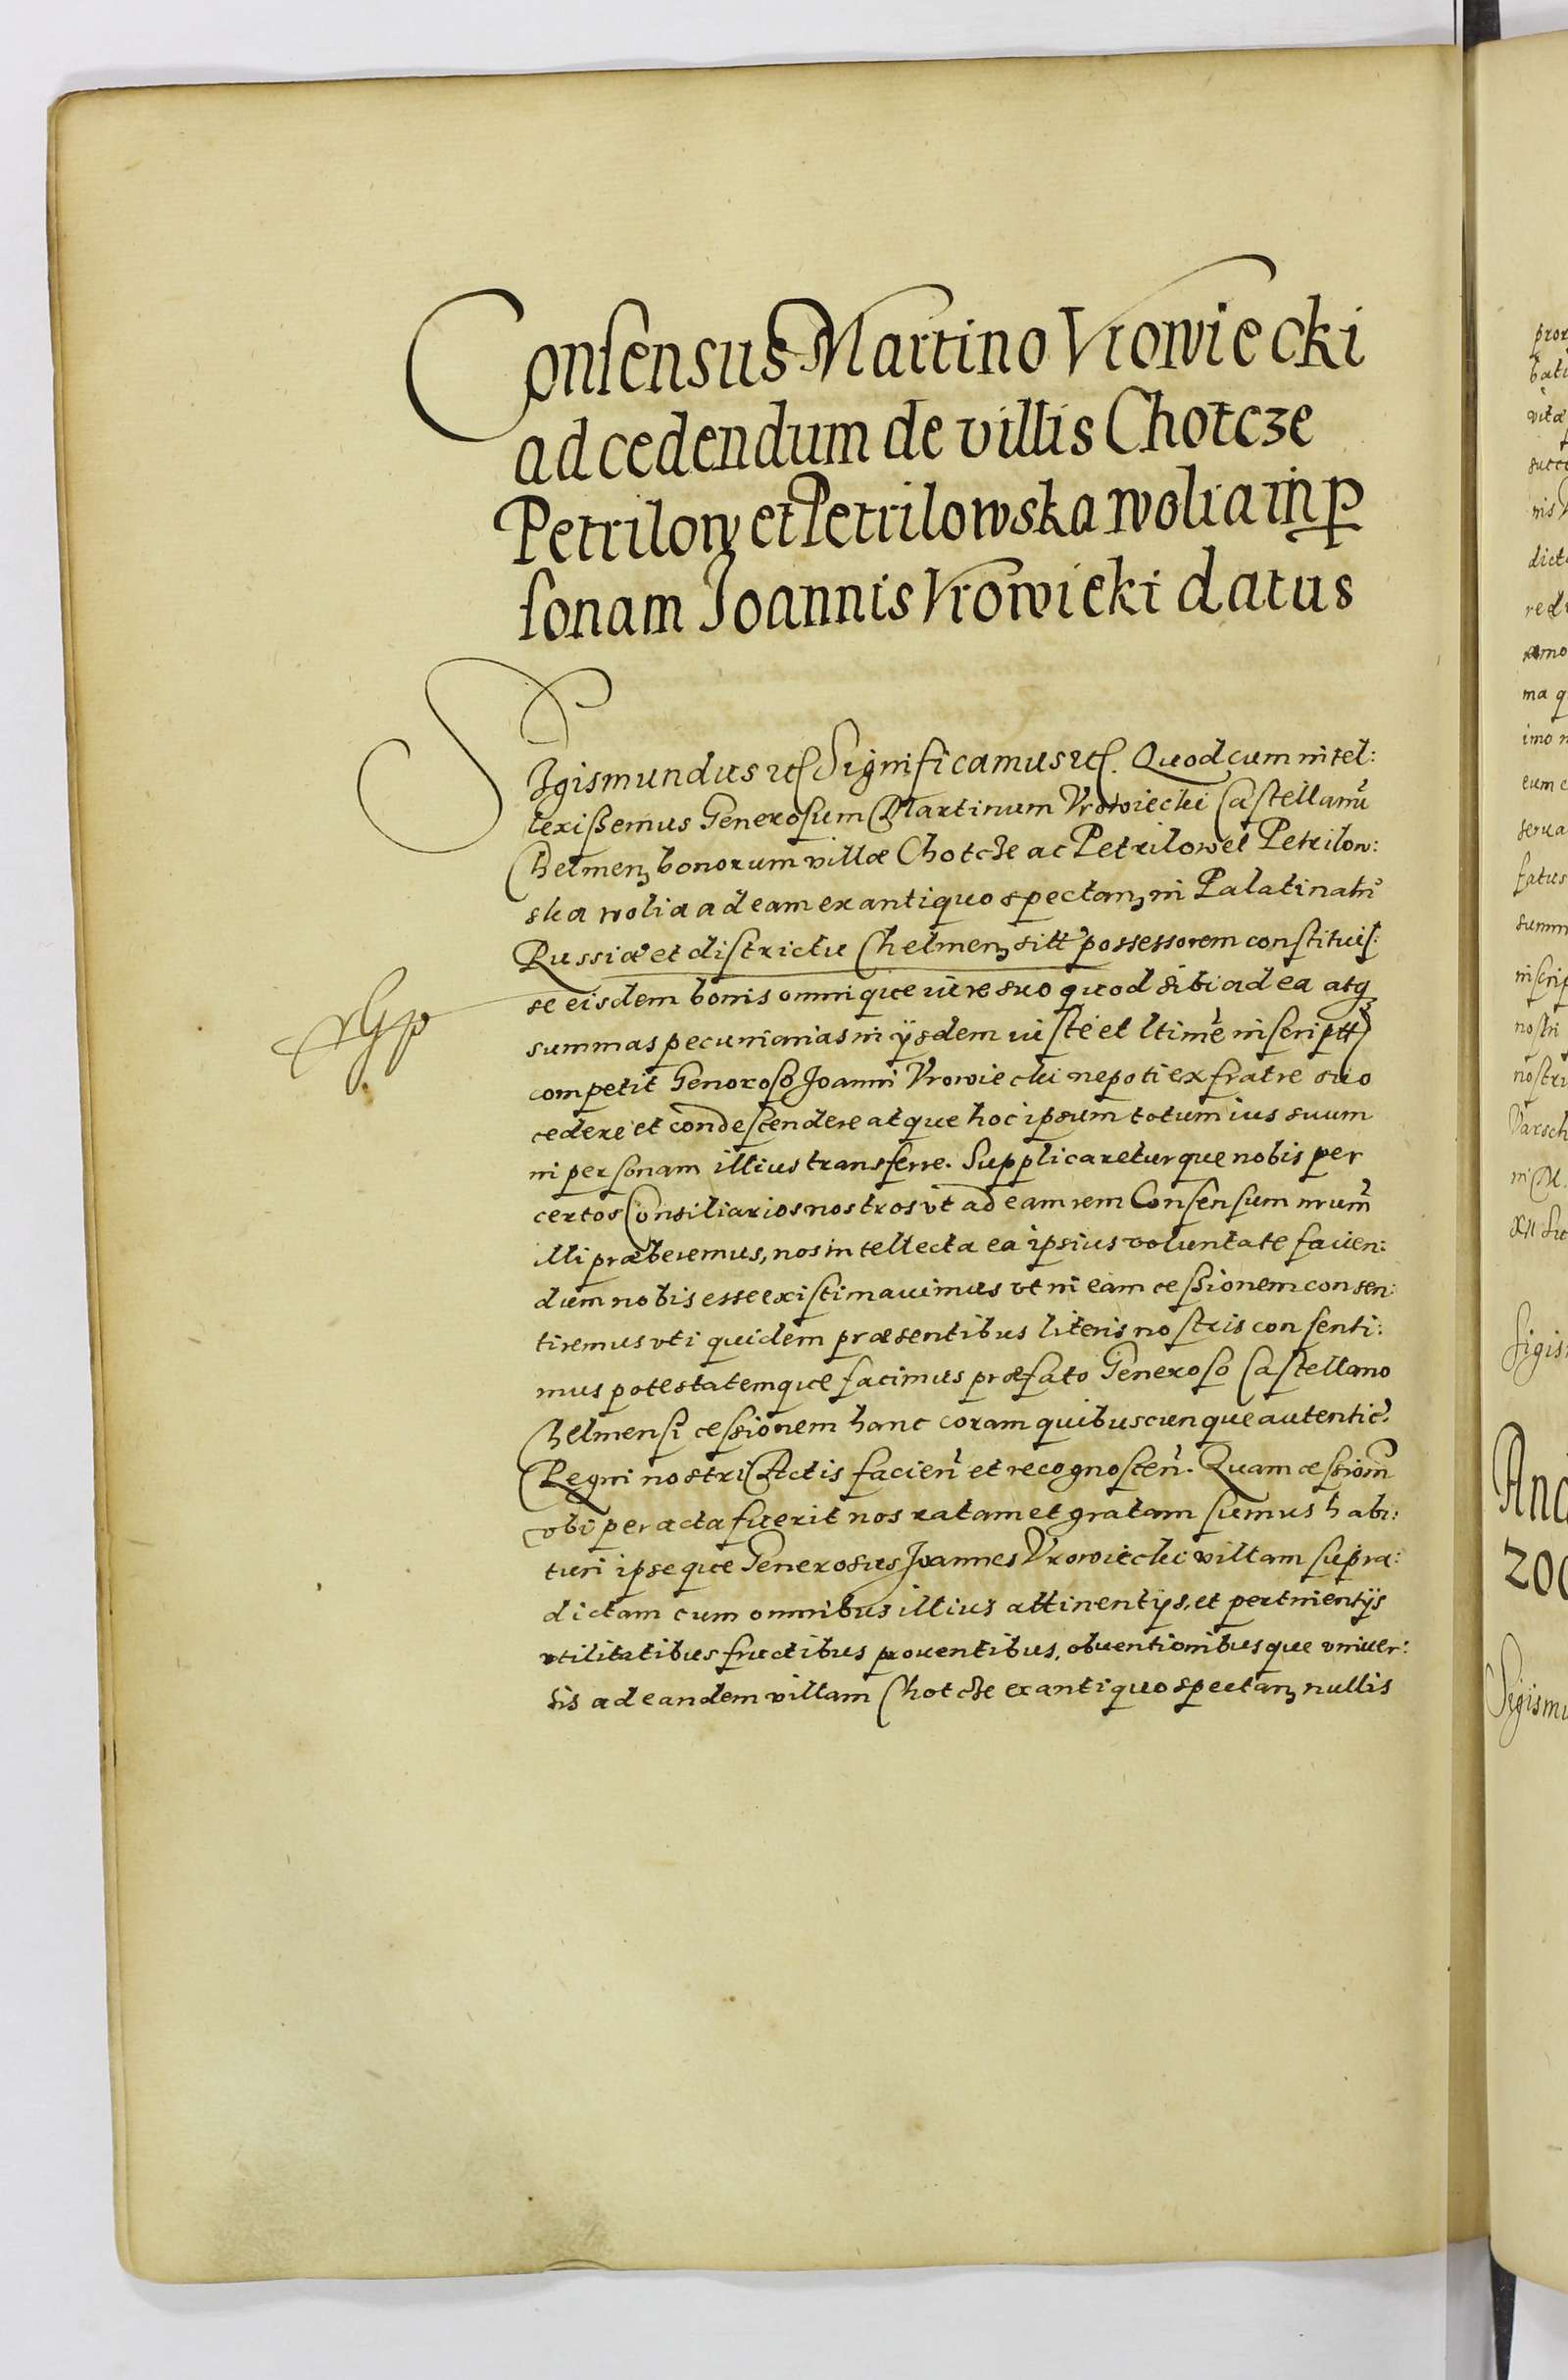 Consensus Martino Vrowiecki
ad cedendum de villis Chotcze
Petrilow et Petrilowska wolia in p
sonam Joannis Vrowieki datus
Sigismundus etc Significamus etc. Quod cum intel:
lexissemus Generosum Martinum Vrowiecki Castellanū
Chelmen bonorum villæ Chotcze ac Petrilow et Petrilow:
ska wolia ad eam ex antiquo spectan in Palatinatū
Russiæ et districtu Chelmen sitt possessorem constituis:
se eisdem bonis omnique iure suo quod sibi ad ea atq
summas pecuniarias in ijsdem iuste et ltime inscriptt
competit Generoso Joanni Vrowiecki nepoti ex fratre suo
cedere et condescendere atque hoc ipsum totum ius suum
in personam illius transferre. Supplicareturque nobis per
certos Consiliarios nostros vt ad eam rem Consensum nrum
illi præberemus, nos intellecta ea ipsius voluntate facien:
dum nobis esse existimauimus vt in eam cessionem consen:
tiremus vti quidem præsentibus literis nostris consenti:
mus potestatemque facimus præfato Generoso Castellano
Chelmensi cessionem hanc coram quibuscunque autentic
Regni nostri Actis facien et recognoscen. Quam cessionem
vbi peracta fuerit nos ratam et gratam sumus habi:
turi ipseque Generosus Joannes Vrowiecki villam supra:
dictam cum omnibus illius attinentijs, et pertinentijs
vtilitatibus fructibus prouentibus, obuentionibusque vniuer:
sis ad eandem villam Chotcze ex antiquo spectan nullis
Sigismu